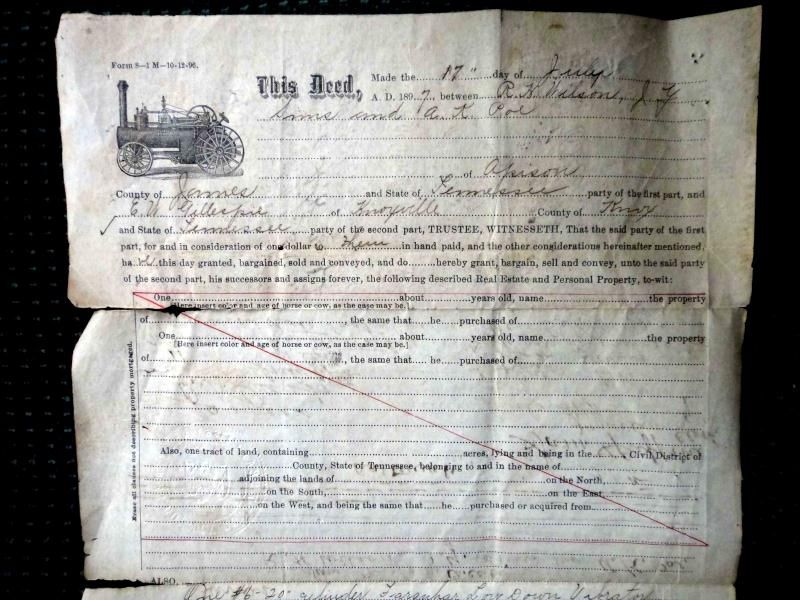 Form 8—1 M—10-12-96.
This Deed, Made the 17" day of July
A. D. 1897, between R. H. Wilson, J. F.
Sims and A. K. Poe
of Apison
County of James and State of Tennessee party of the first part, and
C. W. Gillespie of Knoxville County of Knox
and State of Tennessee party of the second part, TRUSTEE, WITNESSETH, That the said party of the first
part, for and in consideration of one dollar to them in hand paid, and the other considerations hereinafter mentioned,
ha ve this day granted, bargained, sold and conveyed, and do hereby grant, bargain, sell and convey, unto the said party
of the second part, his successors and assigns forever, the following described Real Estate and Personal Property, to-wit:
One about years old, name the property
[Here insert color and age of horse or cow, as the case may be.]
of , the same that he purchased of
One about years old, name the property
[Here insert color and age of horse or cow, as the case may be.]
of , the same that he purchased of
Erase all clauses not describing property mortgaged.
Also, one tract of land, containing acres, lying and being in the Civil District of
County, State of Tennessee, belonging to and in the name of
adjoining the lands of on the North,
on the South, on the East,
on the West, and being the same that he purchased or acquired from
ALSO,
One #6-20- cylinder Farquhar Low Down Vibrator